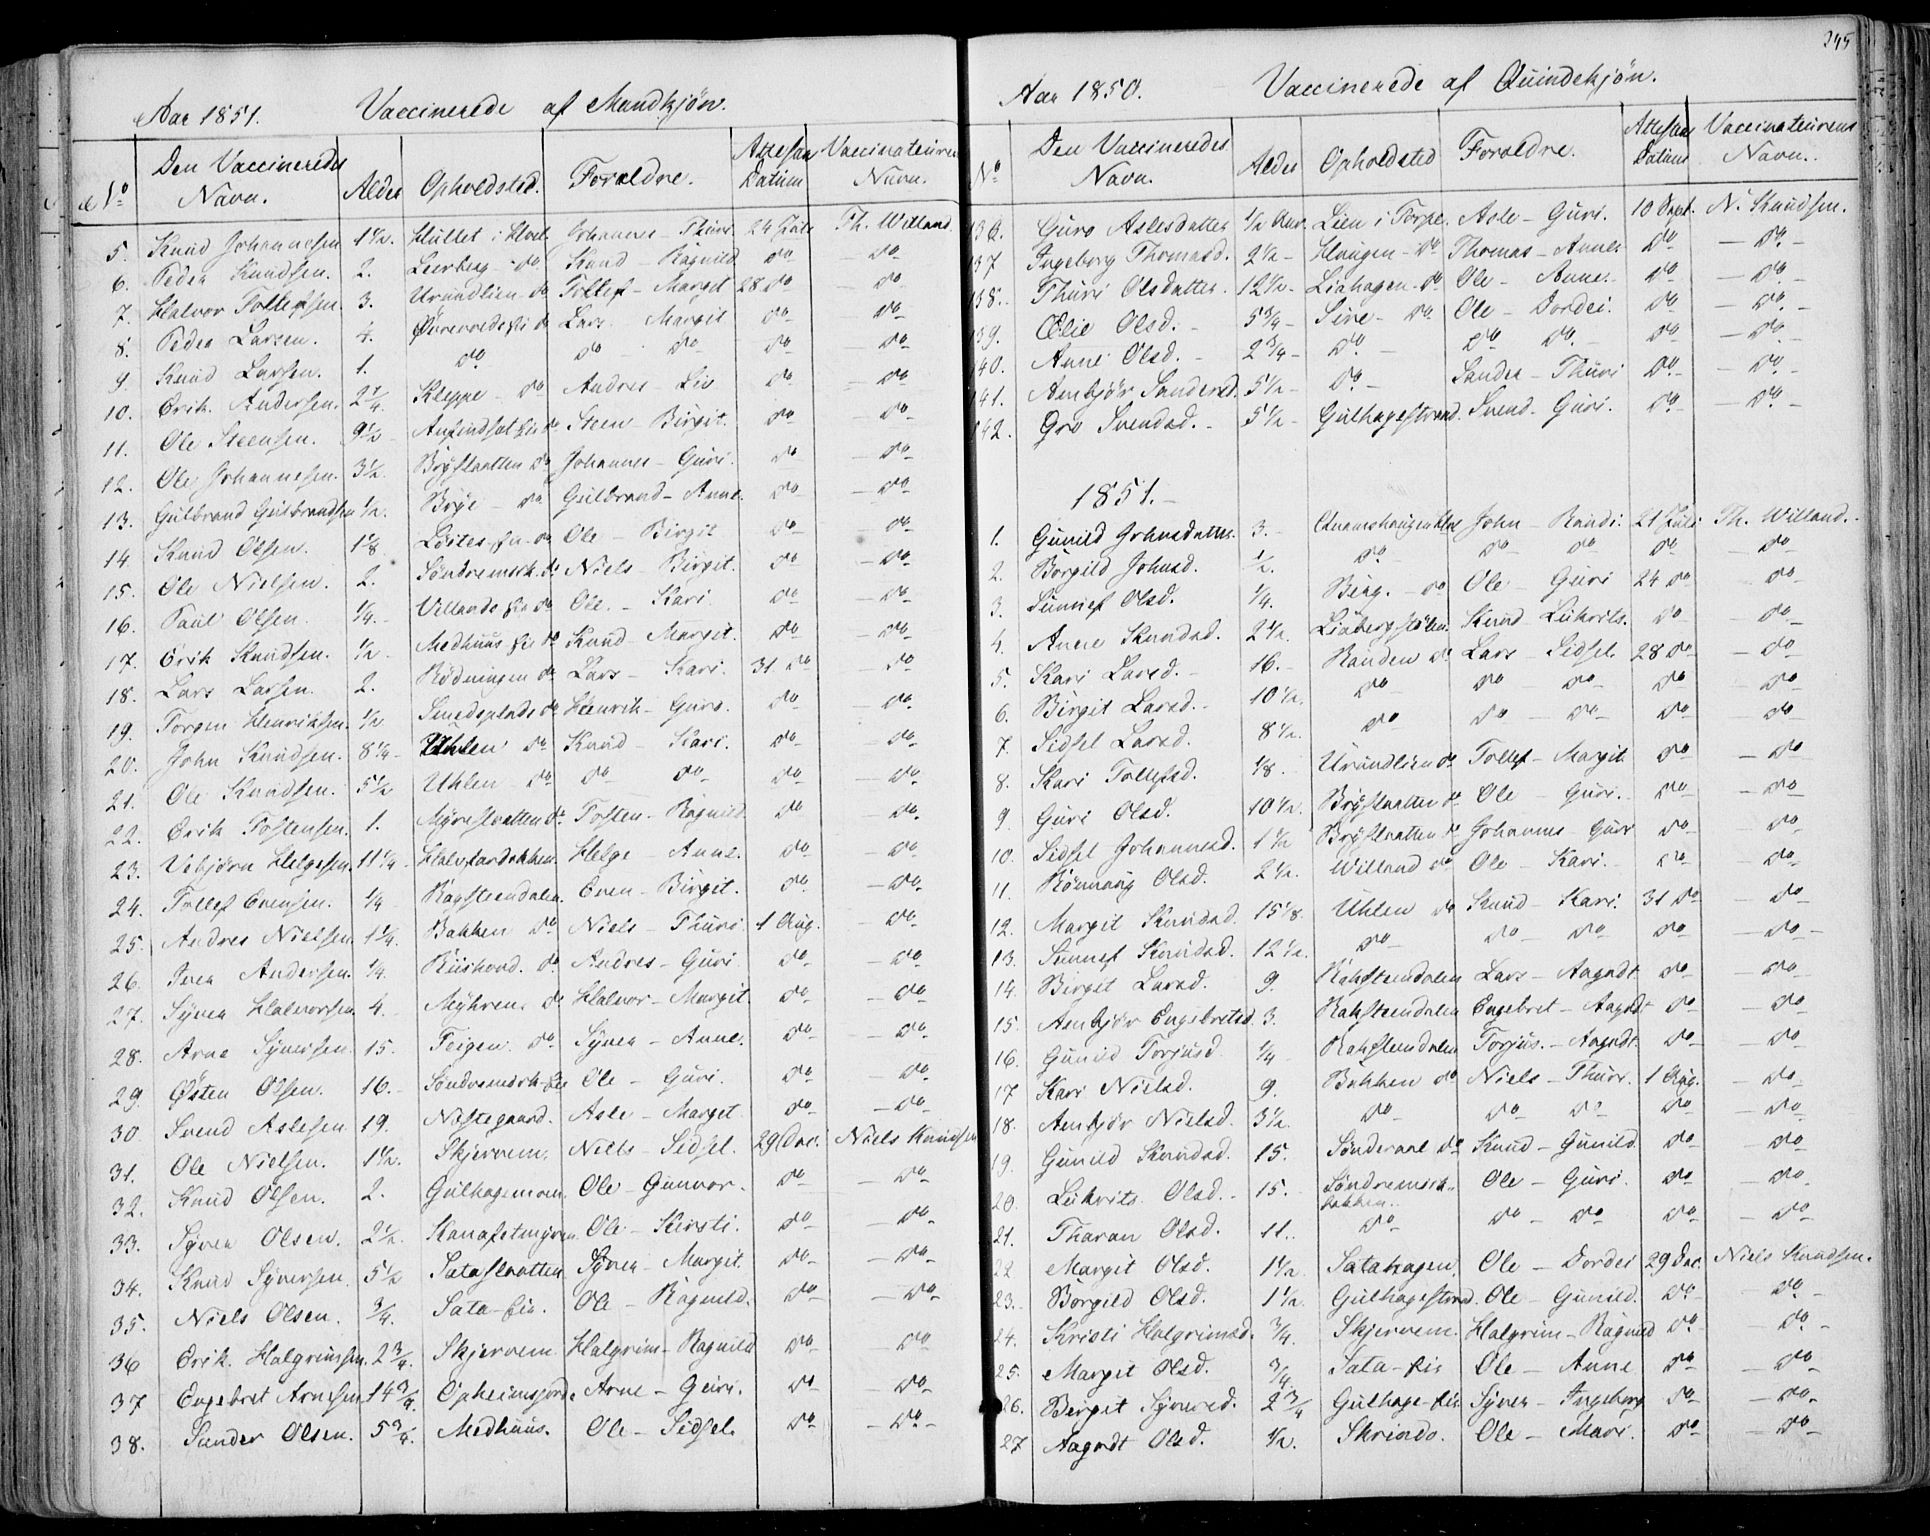 245
Aar 1851. Vaccinerede af Mandkjøn.
No Den Vaccineredes Navn. Alder Opholdsted. Forældre. Attestens Datum Vaccinateurens Navn.
5. Knud Johannesen 1 1/2. Johannes - Thuri 24 Juli Th. Willand
6. Peder Knudsen. 2. Leerberg - do Knud - Ragnild do - do
7. Halvor Tollefsen. 3. Urundlien do Tollef - Margit 28 do - do
8. Peder Larsen. 4. Lars Margit do do
9. Knud Larsen. 1. do do - do do - do
10. Erik Andersen. 2 1/4. Kleppe - do Andres - Liv do - do
11. Ole Steensen. 9 1/2 Steen - Birgit. do - do
12. Ole Johannesen. 3 1/2. Bryslaatten do Johannes - Guri. do - do
13. Gulbrand Gulbrandsen 1/2. Brye - do Gulbrand - Anne. do - do
14. Knud Olsen. 1 1/8 Ole - Birgit do - do
15. Ole Nielsen. 2. Niels - Birgit. do - do
16. Paul Olsen. 1/4. Villands do Ole. - Kari. do - do
17. Erik Knudsen. 1/2 Medhuus do Knud - Margit. do - do
18. Lars Larsen. 2. Rødningen do Lars - Kari. 31 do - do
19. Torgen Henriksen. 1/2 Smedsplads do Henrik - Guro. do - do
20. John Knudsen. 8 1/4 Uhlen do Knud - Kari. do do
21. Ole Knudsen. 5 1/2 Uhlen - do do do do - do
22. Erik Tostensen. 1. Myreslaatten do Tosten - Ragnild do do
23. Vebjørn Helgesen. 11 1/4. Helge - Anne. do - do
24. Tollef Evensen. 1/4 Ragsteendalen. Even - Birgit. do - do
25. Andres Nielsen 1 1/4. Bakken do Niels - Thuri. 1 Aug. - do
26. Iver Andersen. 1/4. do Andres - Guri. do - do
27. Syver Halvorsen 4. Myhren do Halvor - Margit. do - do
28. Arne Syversen. 15. Feigen. do Syver - Anne. do - do
29. Østen Olsen. 16. Ole - Guri. do - do
30. Svend Aslesen 19. Nestegaard. Asle - Marget do - do
31. Ole Nielsen. 1 1/2. Skjervem. Niels - Sidsel. 29 Dec. Niels Knudsen
32. Knud Olsen. 2. Gulhagemoen. Ole - Gunvor. do - do
33. Syver Olsen. 2 1/2. Ole - Kirsti. do - do
34. Knud Syversen. 5 1/2 Sataslaatten Syver - Margit. do - do
35. Niels Olsen. 3/4. Sata-eie. Ole - Ragnild. do - do
36 Erik Halgrimsen. 2 3/4. Skjervem Halgrim - Ragnild do - do
37 Engebret Arnesen 14 3/4. Opheimsjord. Arne - Guri. do - do
38. Sander Olsen. 5 3/4. Medhuus. Ole - Sidsel. do - do
Aar 1850. Vaccinerede af Quindekjøn.
No Den Vaccineredes Navn. Alder Opholdsted Forældre. Attestens Datum Vaccinateurens Navn.
136. Guro Aslesdatter 1/2 Aar. Lien i Torpe Asle - Guri. 10 Sept. N. Knudsen.
137 Ingeborg Thomasd. 2 1/2 - Haugen - do Thomas - Anne. do - do -
138. Thuri Olsdatter 12 1/2 - Liahagen - do Ole - Anne. do - do -
139. Olsd. - 5 3/4 - Sire - do Ole - Dordei. do - do -
140. Anne Olsd. - 2 3/4 - do - do do. - do - do -
141. Ambjør Sandersd. 5 1/2 - do - Sander - Thuri do - do -
142. Gro Svendsd. - 5 1/2 - Gulhagestrand. Svend - Guri. do - do -
1851. -
1. Gunild Johnsdatter. 3. John - Randi. 21 Juli Th. Willand.
2. Borgild Johnsd. 1/2. do do - do do - do
3. Sunnef Olsd. 1/4. Berg. - do Ole - Guri 24 do - do
4. Anne Knudsd. 2 1/2. Liabergstølen. Knud - Lukrits. do - do
5. Kari Larsd. - 16. - Randen do Lars - Sidsel. 28 do - do
6. Birgit Larsd. - 10 1/2. do do - do do - do
7. Sidsel Larsd. 8 1/2. do do - do do do
8. Kari Tollefsd. 1/8. Urundlien do Tollef - Margit. do - do
9. Guri Olsd. 10 1/2. Bryslaatten do Ole - Guri. do - do
10. Sidsel Johannesd. 1 1/2 Bryslaatten do Johannes - Guri do - do
11. Rønnaug Olsd. 2 1/2. Willand do Ole - Kari. do - do
12. Margit Knudsd. 15 1/8. Uhlen do Knud - Kari. 31 do - do
13. Sunnef Knudsd. 12 1/2. do do - do do - do -
14. Birgit Larsd. 9. Rahsteendalen Lars - Aagodt do - do
15. Ambjør Engebretsd. 3. Rahsteendalen Engebret - Aagodt do - do
16. Gunild Torjusd. 1/4 Rahsteendalen Torjus. - Aagodt do - do
17 Kari Nielsd. 9. Bakken do Niels - Thuri. 1 Aug. - do
18. Ambjør Nielsd. 3 1/2. do do do do - do
19. Gunild Knudsd. 15. Sønderaal do Knud - Gunild. do - do
20. Lukrits Olsd. - 15. Søndremsrh. bakken. Ole - Guri. do - do
21. Tharan Olsd. 11. do do - do do - do
22 Margit Olsd. 1 1/2. Satahagen. Ole - Dordei 29 Dec. Niels Knudsen.
23. Borgild Olsd. 1 1/2. Gulhagestrand. Ole - Gunild. do - do -
24. Kristi Halgrimsd. 3/4. Skjervem. Halgrim - Ragnild do - do -
25. Margit Olsd. 3/4. Sata-eie Ole - Anne do - do
26. Birgit Syversd. 2 3/4 Gulhage-eie. Syver - Ingeborg do - do
27 Aagodt Olsd. 1/2. Skrindo. Ole - Mari. do - do